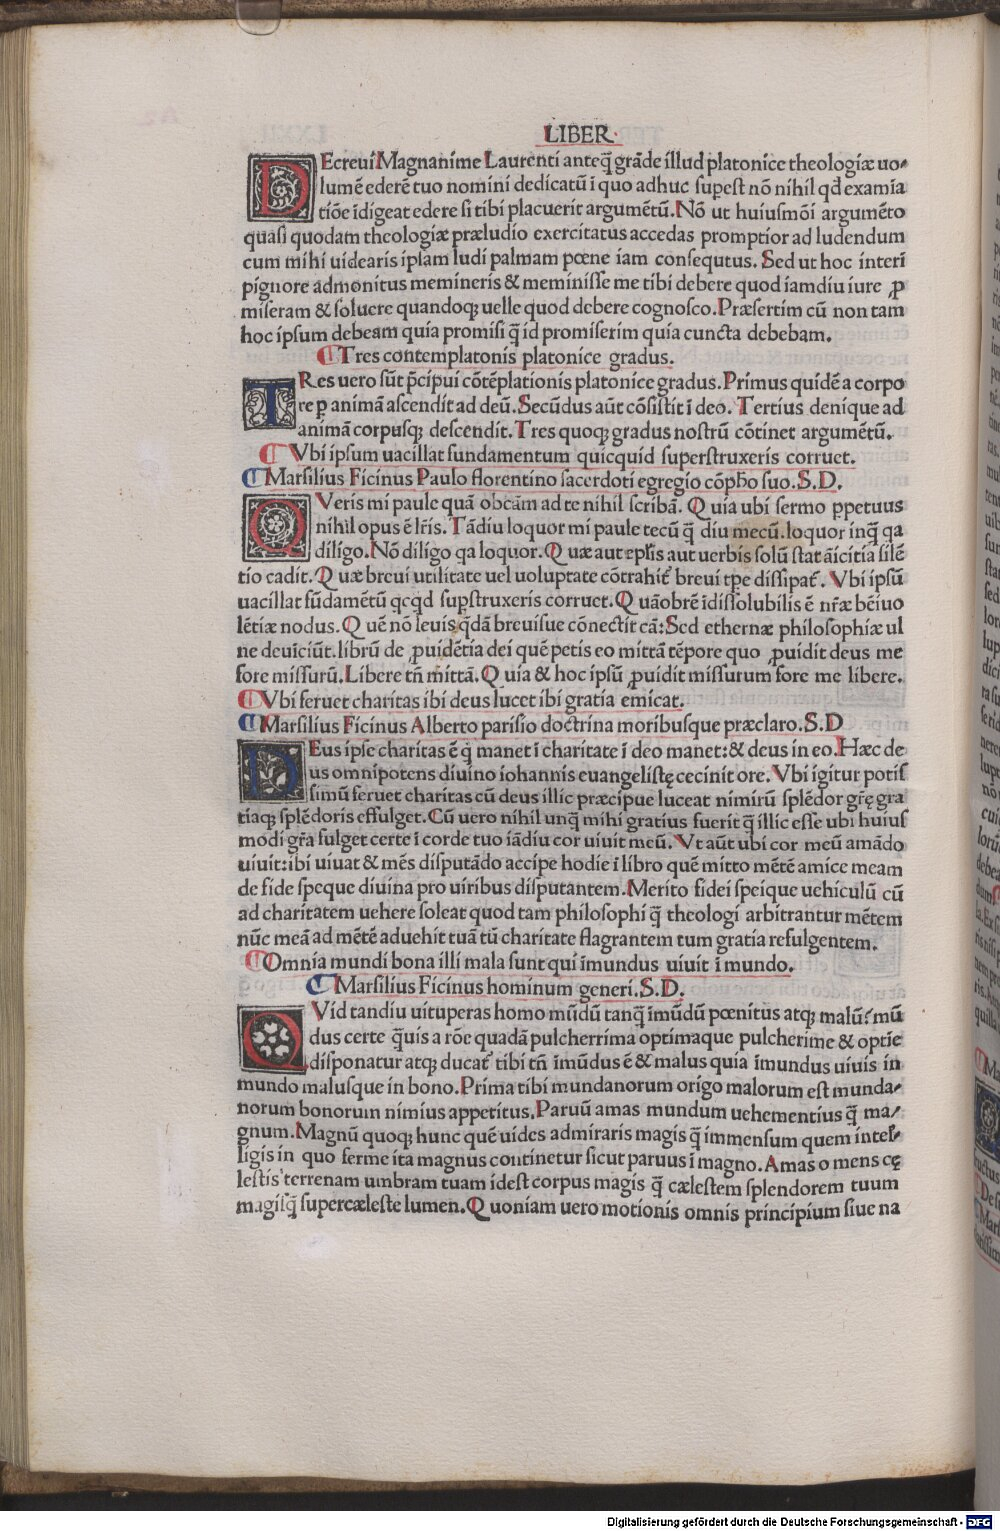 LIBER
DEcreui Magnanime Laurenti anteq̃ grãde illud platonice theologiæ uo-
lumẽ ederẽ tuo nomini dedicatũ ĩ quo adhuc supest nõ nihil qd examia
tiõe ĩdigeat edere si tibi placuerit argumẽtũ. Nõ ut huiusmõi argumẽto
quasi quodam theologiæ præludio exercitatus accedas promptior ad ludendum
cum mihi uidearis ipsam ludi palmam pœne iam consequtus. Sed ut hoc interĩ
pignore admonitus memineris & meminisse me tibi debere quod iamdiu iure ꝓ
miseram & soluere quandoqꝫ uelle quod debere cognosco. Præsertim cũ non tam
hoc ipsum debeam quia promisi q̃ id promiserim quia cuncta debebam.
¶ Tres contemplatonis platonice gradus.
TRes uero sũt p̃cipui cõtẽplationis platonice gradus. Primus quidẽ a corpo
re ꝑ animã ascendit ad deũ. Secũdus aũt cõsistit ĩ deo. Tertius denique ad
animã corpusqꝫ descendit. Tres quoqꝫ gradus nostrũ cõtinet argumẽtũ.
¶ Vbi ipsum uacillat fundamentum quicquid superstruxeris corruet.
¶ Marsilius Ficinus Paulo florentino sacerdoti egregio cõpħo suo. S. D.
QVeris mi paule quã obcãm ad te nihil scribã. Quia ubi sermo ꝑpetuus
nihil opus ẽ lr̃is. Tãdiu loquor mi paule tecũ q̃ diu mecũ. loquor inq̃ qa
diligo. Nõ diligo qa loquor. Quæ aut ep̃lis aut uerbis solũ stat ãicitia silẽ
tio cadit. Quæ breui utilitate uel uoluptate cõtrahit̃ breui tp̃e dissipat̃. Vbi ipsũ
uacillat fũdamẽtũ qcqd supstruxeris corruet. Quãobrẽ ĩdissolubilis ẽ nr̃æ bẽiuo
lẽtiæ nodus. Quẽ nõ leuis q̃dã breuisue cõnectit cã: Sed ethernæ philosophiæ ul
ne deuĩciũt. librũ de ꝓuidẽtia dei quẽ petis eo mittã tẽpore quo ꝓuidit deus me
fore missurũ. Libere tñ mittã. Quia & hoc ipsũ ꝓuidit missurum fore me libere.
¶ Vbi feruet charitas ibi deus lucet ibi gratia emicat.
¶ Marsilius Ficinus Alberto parisio doctrina moribusque præclaro. S. D
DEus ipse charitas ẽ q̃ manet ĩ charitate ĩ deo manet: & deus in eo. Hæc de
us omnipotens diuino iohannis euangelistę cecinit ore. Vbi igitur potis
simũ feruet charitas cũ deus illic præcipue luceat nimirũ splẽdor gr̃ę gra
tiaqꝫ splẽdoris effulget. Cũ uero nihil unq̃ mihi gratius fuerit q̃ illic esse ubi huius
modi gr̃a fulget certe ĩ corde tuo iãdiu cor uiuit meũ. Vt aũt ubi cor meũ amãdo
uiuit: ibi uiuat & mẽs disputãdo accipe hodie ĩ libro quẽ mitto mẽtẽ amice meam
de fide speque diuina pro uiribus disputantem. Merito fidei speique uehiculũ cũ
ad charitatem uehere soleat quod tam philosophi q̃ theologi arbitrantur mẽtem
nũc meã ad mẽtẽ aduehit tuã tũ charitate flagrantem tum gratia refulgentem.
¶ Omnia mundi bona illi mala sunt qui ĩmundus uiuit ĩ mundo.
¶ Marsilius Ficinus hominum generi. S. D.
QVid tandiu uituperas homo mũdũ tanqꝫ ĩmũdũ pœnitus atqꝫ malũ? mũ
dus certe q̃uis a rõe quadã pulcherrima optimaque pulcherime & optĩe
disponatur atqꝫ ducat̃ tibi tñ ĩmũdus ẽ & malus quia ĩmundus uiuis in
mundo malusque in bono. Prima tibi mundanorum origo malorum est munda-
norum bonorum nimius appetitus. Paruũ amas mundum uehementius q̃ ma-
gnum. Magnũ quoqꝫ hunc quẽ uides admiraris magis q̃ immensum quem intel-
ligis in quo ferme ita magnus continetur sicut paruus ĩ magno. Amas o mens cę
lestis terrenam umbram tuam idest corpus magis q̃ cælestem splendorem tuum
magisq̃ supercæleste lumen. Quoniam uero motionis omnis principium siue na
Digitalisierung gefördert durch die Deutsche Forschungsgemeinschaft - DFG